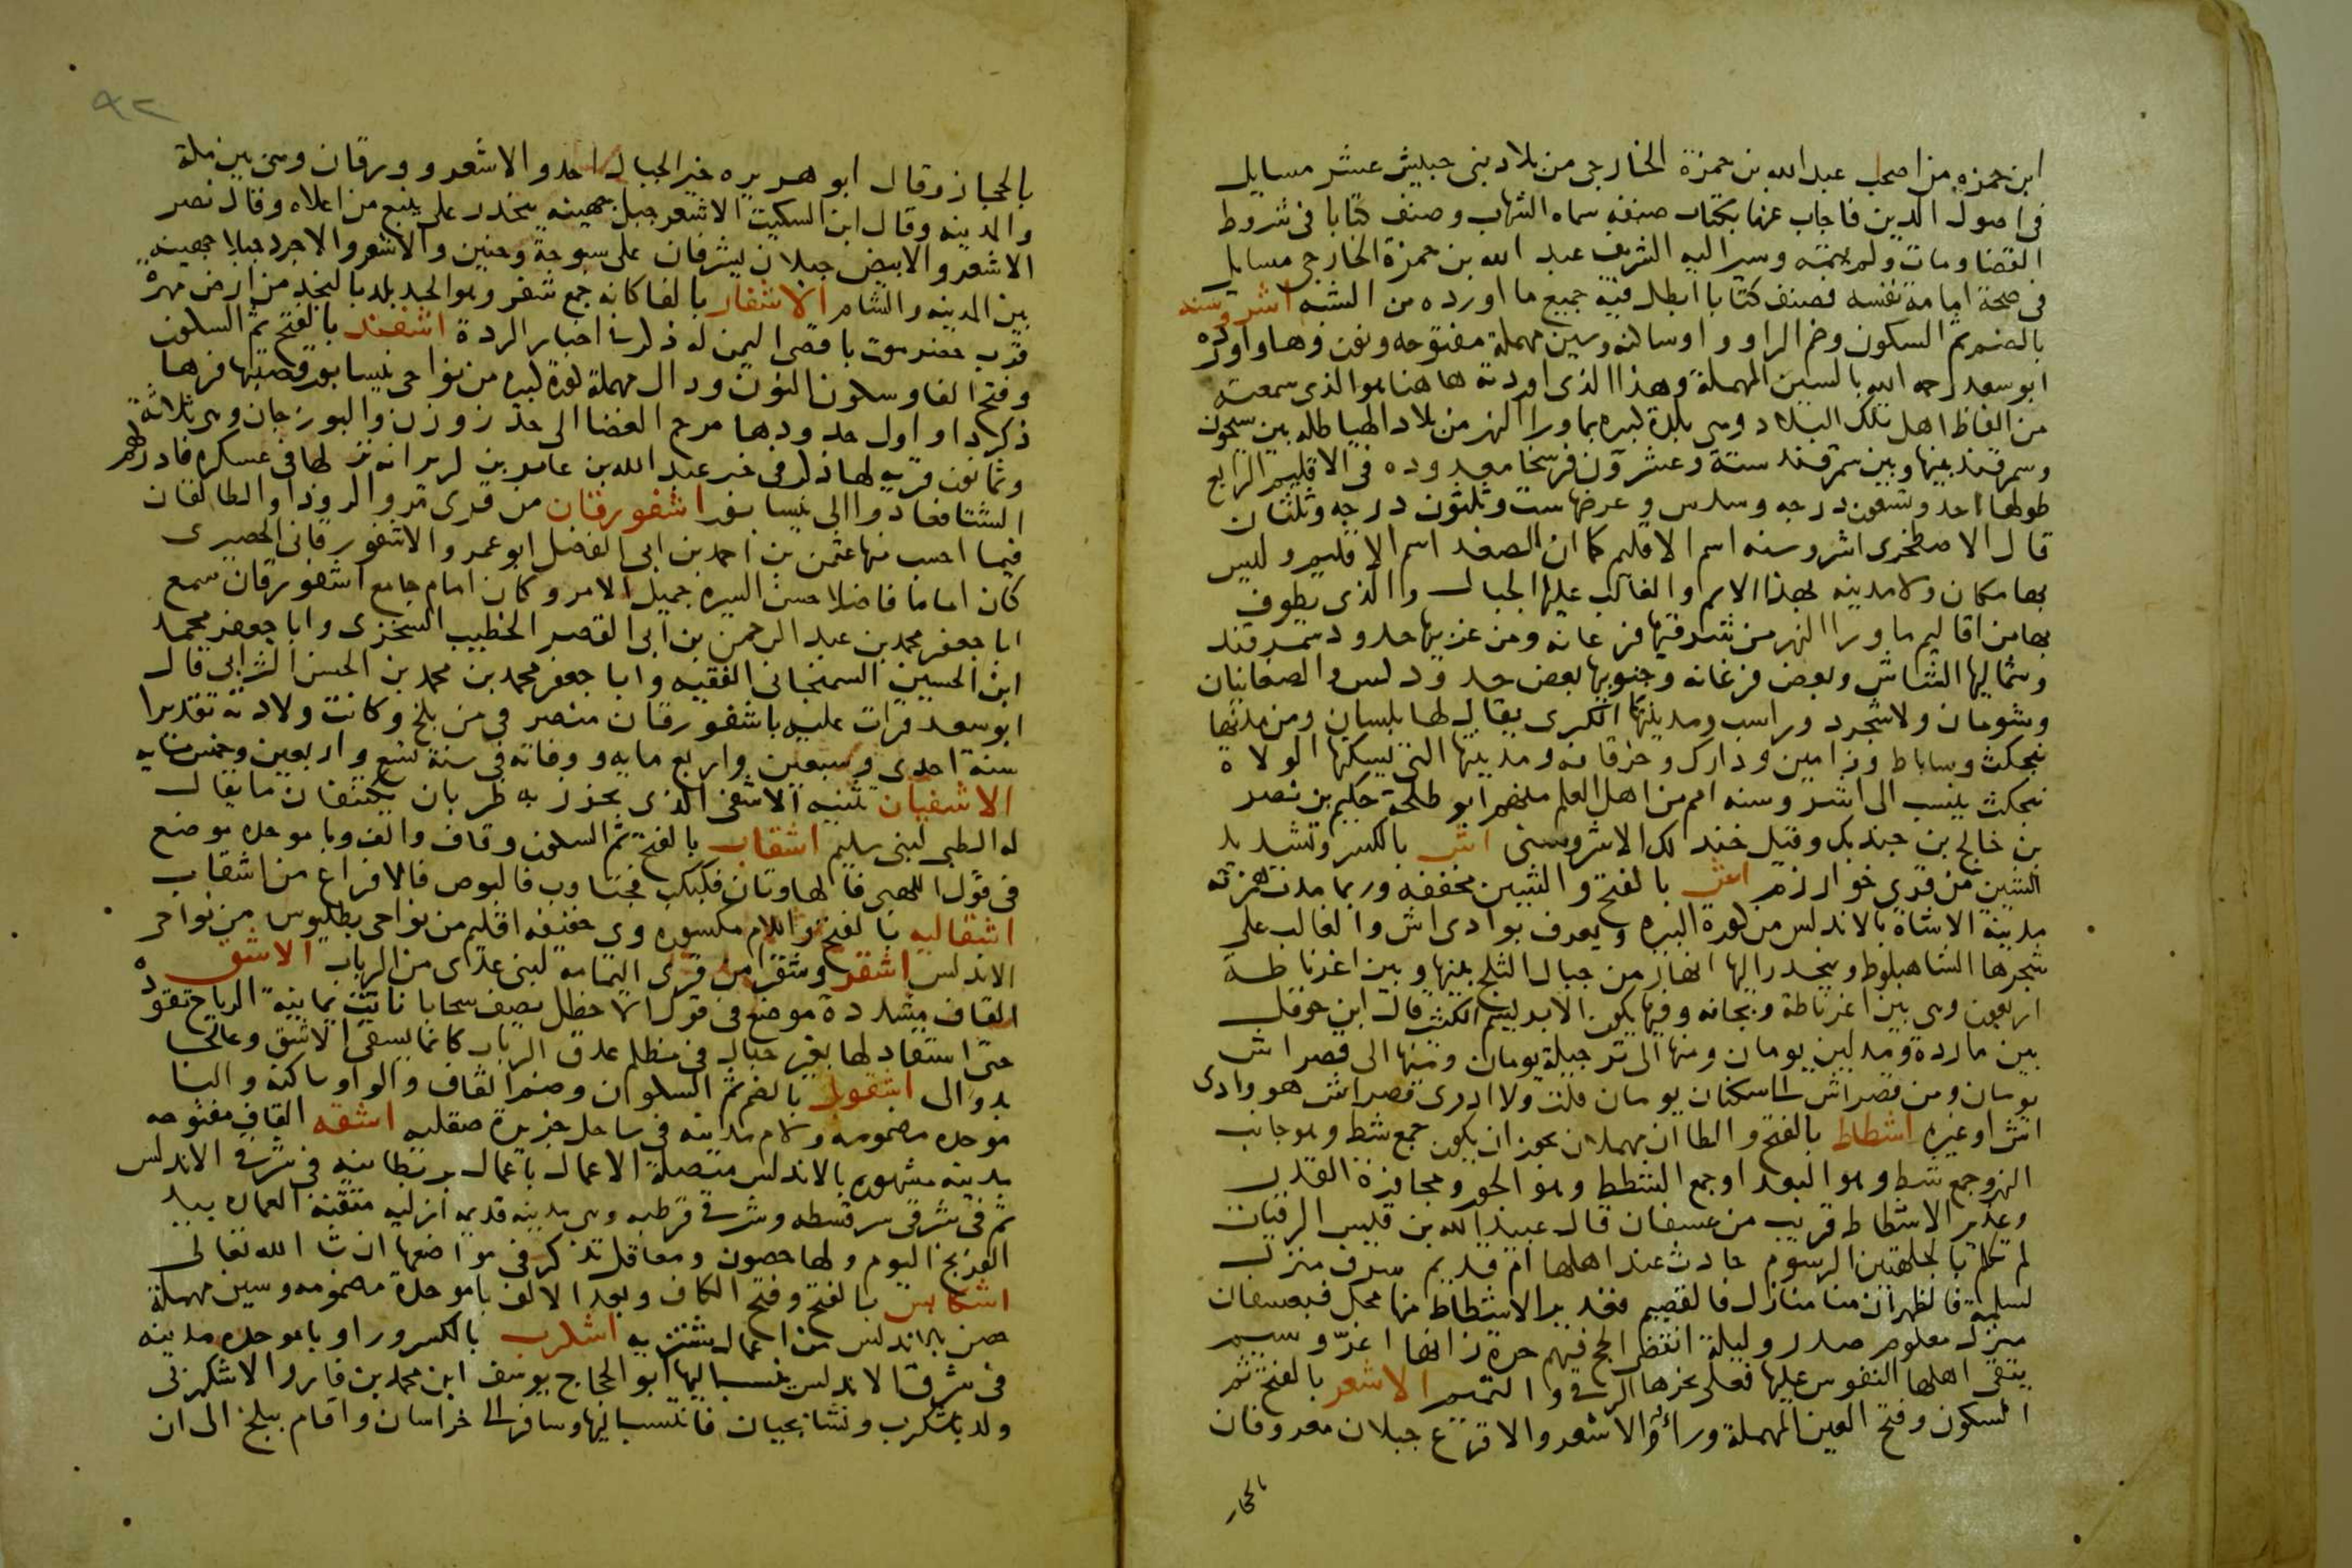 ابن حمزه من اصحاب عبد الله بن حمزة الخارجي من بلاد بني حبيش عشر مسايل
في اصول الدين فاجاب عنها بكتاب صنفه سماه الشهاب وصنف كتابا في شروط
القضا ومات ولم يتمه وسير اليه الشريف عبد الله بن حمزة الخارجي مسايل
في صحة امامة نفسه فصنف كتابا ابطل فيه جميع ما اورده من الشبه اشروسنه
بالضم ثم السكون وضم الرا وواو ساكنه وسين مهملة مفتوحه ونون وها واورده
ابو سعد رحمه الله بالسين المهملة وهذا الذي اوردته هاهنا هو الذي سمعته
من الفاظ اهل تلك البلاد وهي بلدة كبيره بماورا النهر من بلاد الهياطله بين سيحون
وسمرقند بينها وبين سمرقند ستة وعشرون فرسخا معدوده في الاقليم الرابع
طولها احد وتسعون درجه وسدس وعرضها ست وثلثون درجه وثلثان
قال الاصطخري اشروسنه اسم الاقليم كما ان الصغد اسم الاقليم وليس
بها مكان ولا مدينه بهذا الاسم والغالب عليها الجبال والذي يطوف
بها من اقاليم ماورا النهر من شرقيها فرغانه ومن غربيها حدود سمرقند
وشماليها الشاش وبعض فرغانه وجنوبيها بعض حدود كس والصغانيان
وشومان ولاشجرد وراسب ومدينتها الكبرى يقال لها بلسان ومن مدنها
بنجكث وساباط وزامين وذارك وخرقانه ومدينتها التي يسكنها الولاة
بنجكث ينسب الى اشروسنه امم من اهل العلم منهم ابو طلحة حكيم بن نصر
بن خالج بن جندبك وقيل خندلك الاشروسني اش بالكسر وتشديد
الشين من قرى خوارزم اش بالفتح والشين مخففه وربما مدت همزته
مدينة الاشاة بالاندلس من كورة البيره ويعرف بوادي اش والغالب على
شجرها الشاهبلوط وينحدر اليها انهار من جبال الثلج بينها وبين اغرناطة
اربعون وهي بين اغرناطة وبجانه وفيها يكون الابريسم الكثير قال ابن حوقل
بين ماردة ومدلين يومان ومنها الى ترجيلة يومان ومنها الى قصر اش
يومان ومن قصر اش الى مكناسة يومان قلت ولا ادري قصر اش هو وادي
اش او غيره اشطاط بالفتح والطاان مهملان يجوز ان يكون جمع شط وهو جانب
النهر وجمع شط وهو البعد او جمع الشطط وهو الجور ومجاوزة القدر
وغدير الاشطاط قريب من عسفان قال عبيد الله بن قيس الرقيات
لم تكلم بالجلهتين الرسوم حادث عند اهلها ام قديم سرف منزل
لسلمة فالظهران منا منازل فالقصيم فغدير الاشطاط منها محل فبعسفان
منزل معلوم صدروا ليلة انقضى الحج فيهم حرة زانها اغر وسيم
يتقي اهلها النفوس عليها فعلى نحرها الرقى والتميم الاشعر بالفتح ثم
السكون وفتح العين المهملة وراء والاشعر والاقرع جبلان معروفان
بالحجاز
٩٢
بالحجاز وقال ابو هريره خير الجبال احد والاشعر وورقان وهي بين مكة
والمدينه وقال ابن السكيت الاشعر جبل جهينه ينحدر على ينبع من اعلاه وقال نصر
الاشعر والابيض جبلان يشرفان على سبوحة وحنين والاشعر والاجرد جبلا جهينه
بين المدينه والشام الاشفار بالفا كانه جمع شفر وهو الحد بلد بالنجد من ارض مهرة
قرب حضرموت باقصى اليمن له ذكر في اخبار الردة اشفند بالفتح ثم السكون
وفتح الفا وسكون النون ودال مهملة كورة كبيره من نواحي نيسابور قصبتها فرها
ذكرداو اول حدودها مرج الفضا الى حد زوزن والبوزجان وهي ثلاثة
وثمانون قريه لها ذكر في خبر عبد الله بن عامر بن كريز انه نزلها في عسكره فادركهم
الشتا فعادوا الى نيسابور اشفورقان من قرى مرو الروذ والطالقان
فيما احسب منها عثمن بن احمد بن ابي الفضل ابو عمر والاشفورقاني الحصيري
كان اماما فاضلا حسن السيره جميل الامر وكان امام جامع اشفورقان سمع
ابا جعفر محمد بن عبد الرحمن بن ابي القصر الخطيب السنجزي وابا جعفر محمد
ابن الحسين السمنجاني الفقيه وابا جعفر محمد بن محمد بن الحسن الشرابي قال
ابو سعد قرات عليه باشفورقان منصرفي من بلخ وكانت ولادته تقديرا
سنة احدى وسبعين واربع مايه ووفاته في سنة تسع واربعين وخمس مايه
الاشفيان تثنيه الاشفى الذي يخرز به ظربان يكتنفان ما يقال
له الظبي لبني سليم اشقاب بالفتح ثم السكون وقاف والف وبا موحده موضع
في قول اللهبي فالهاوتان فكبكب فجتاوب فالبوص فالافراع من اشقاب
اشقاليه بالفتح واللام مكسوره وي خفيفه اقليم من نواحي بطليوس من نواحي
الاندلس اشقر وشقرا من قرى اليمامة لبني عدي من الرباب الاشق
القاف مشددة موضع في قول الاخطل يصف سحابا باتت يمانية الرياح تقوده
حتى استقاد لها بغير حبال في مظلم غدق الرباب كانما يسقي الاشق وعالجا
بدوالى اشقوبل بالضم ثم السكون وضم القاف والواو ساكنه والبا
موحده مضمومه ولام مدينه في ساحل جزيرة صقليه اشقه القاف مفتوحه
مدينه مشهوره بالاندلس متصلة الاعمال باعمال بربطانيه في شرقي الاندلس
ثم في شرقي سرقسطه وشرقي قرطبه وهي مدينه قديمه ازليه متقنة العمارة بيد
الافرنج اليوم ولها حصون ومعاقل تذكر في مواضعها ان شا الله تعالى
اشكابس بالفتح وفتح الكاف وبعد الالف با موحدة مضمومه وسين مهملة
حصن بالاندلس من اعمال شنتريه اشكرب بالكسر ورا وبا موحده مدينه
في شرق الاندلس ينسب اليها ابو الحجاج يوسف ابن محمد بن فارو الاشكربي
ولد باشكرب ونشا بجيان فانتسب اليها وسافر الى خراسان واقام ببلخ الى ان